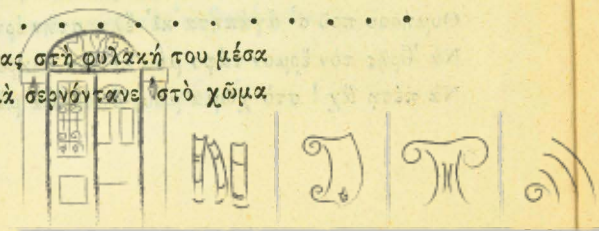 ας στὴ φυλακή του μέσα
ὰ σερνόντανε στὸ χῶμα